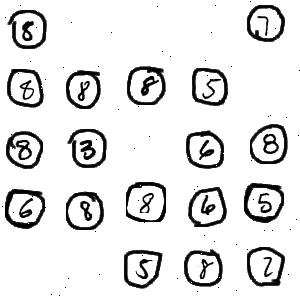 8 7
8 8 8 5
8 3 6 8
6 8 8 6 5
5 8 7